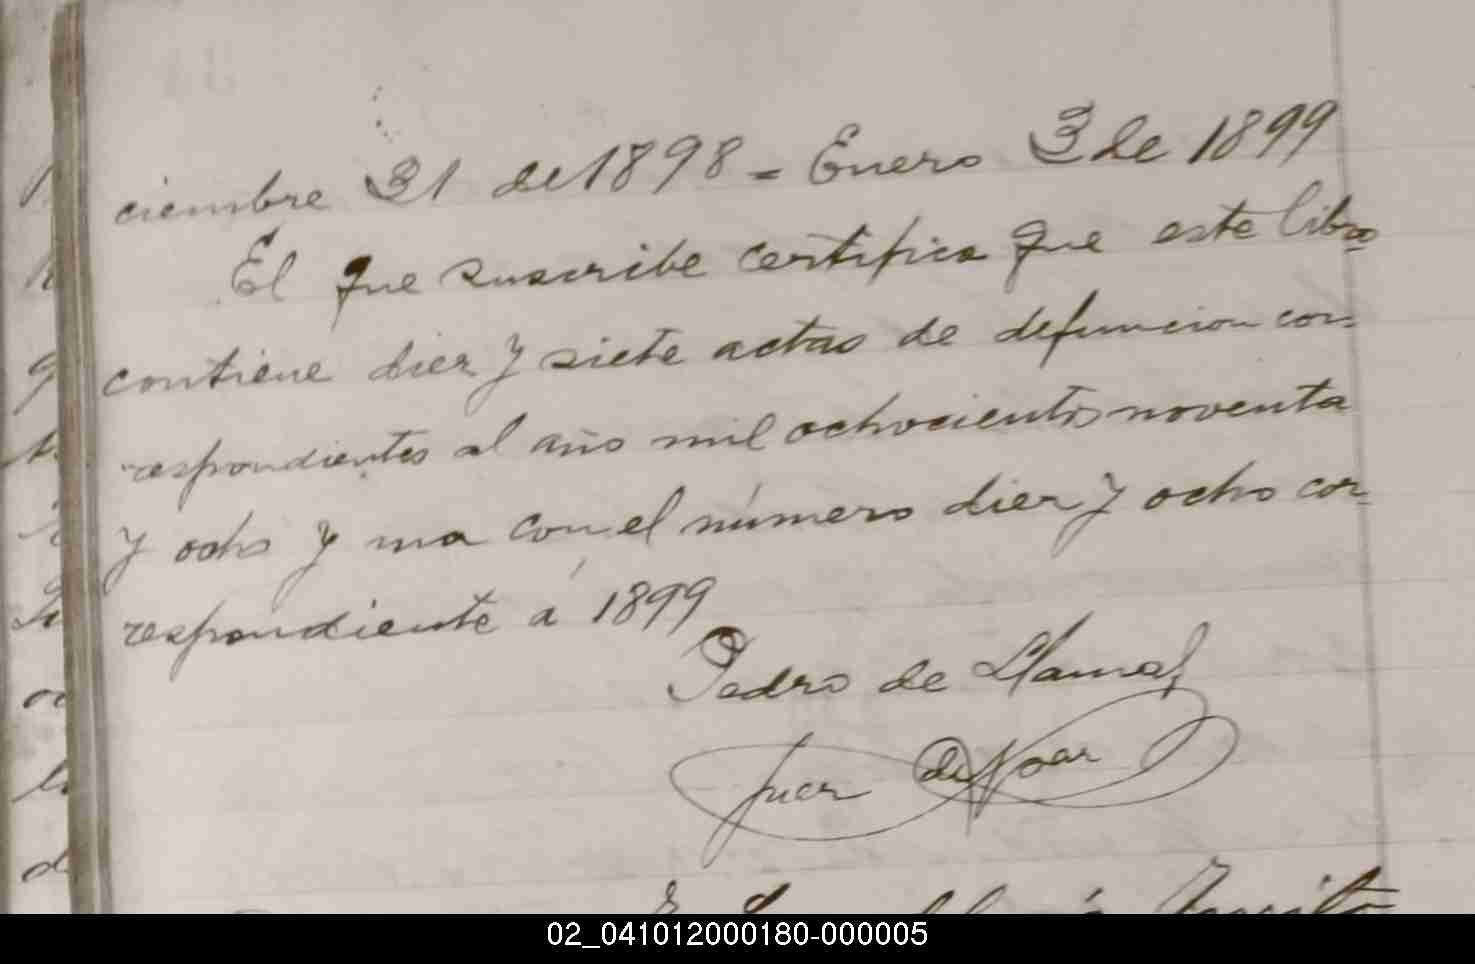 ciembre 31 de 1898 = Enero 3 de 1899
El que suscribe certifica que este libro
contiene diez y siete actas de defuncion cor-
respondientes al año mil ochocientos noventa
y ocho y una con el número diez y ocho cor-
respondiente á 1899
Pedro de Llamas
Juez de
02_041012000180-000005